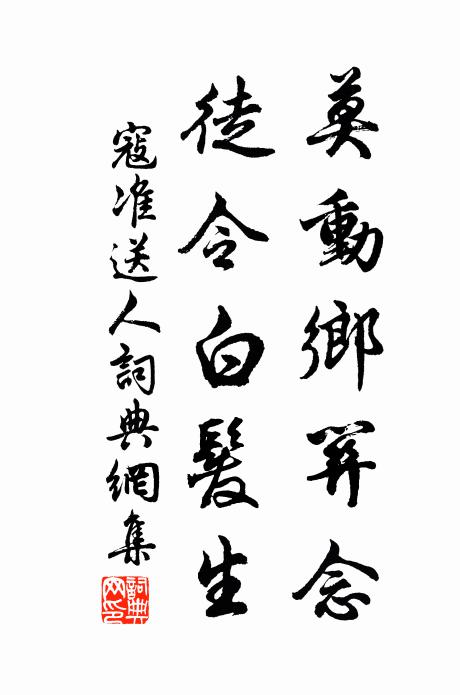 莫動鄉關念
徒令白髮生
寇准送人詞典網集
詞典网印